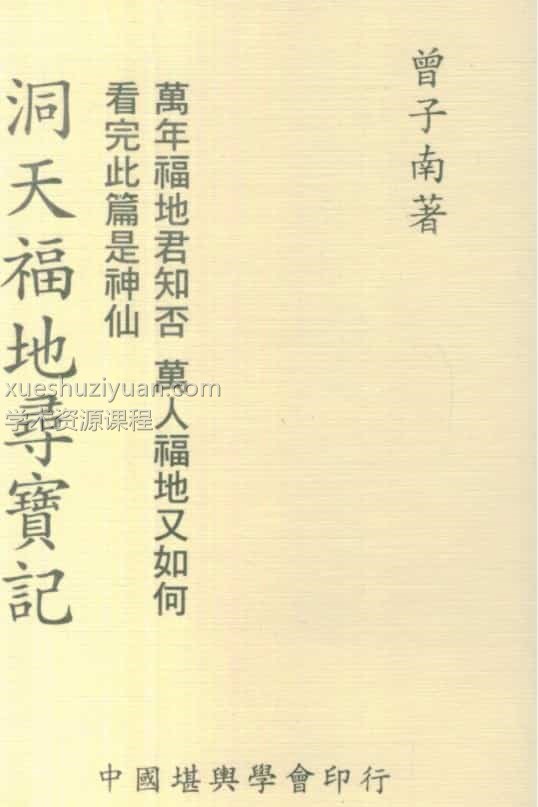 曾子南著
萬年福地君知否 萬人福地又如何
看完此篇是神仙
洞天福地尋寶記
中國堪輿學會印行
xueshuziyuan.com
学术资源课程